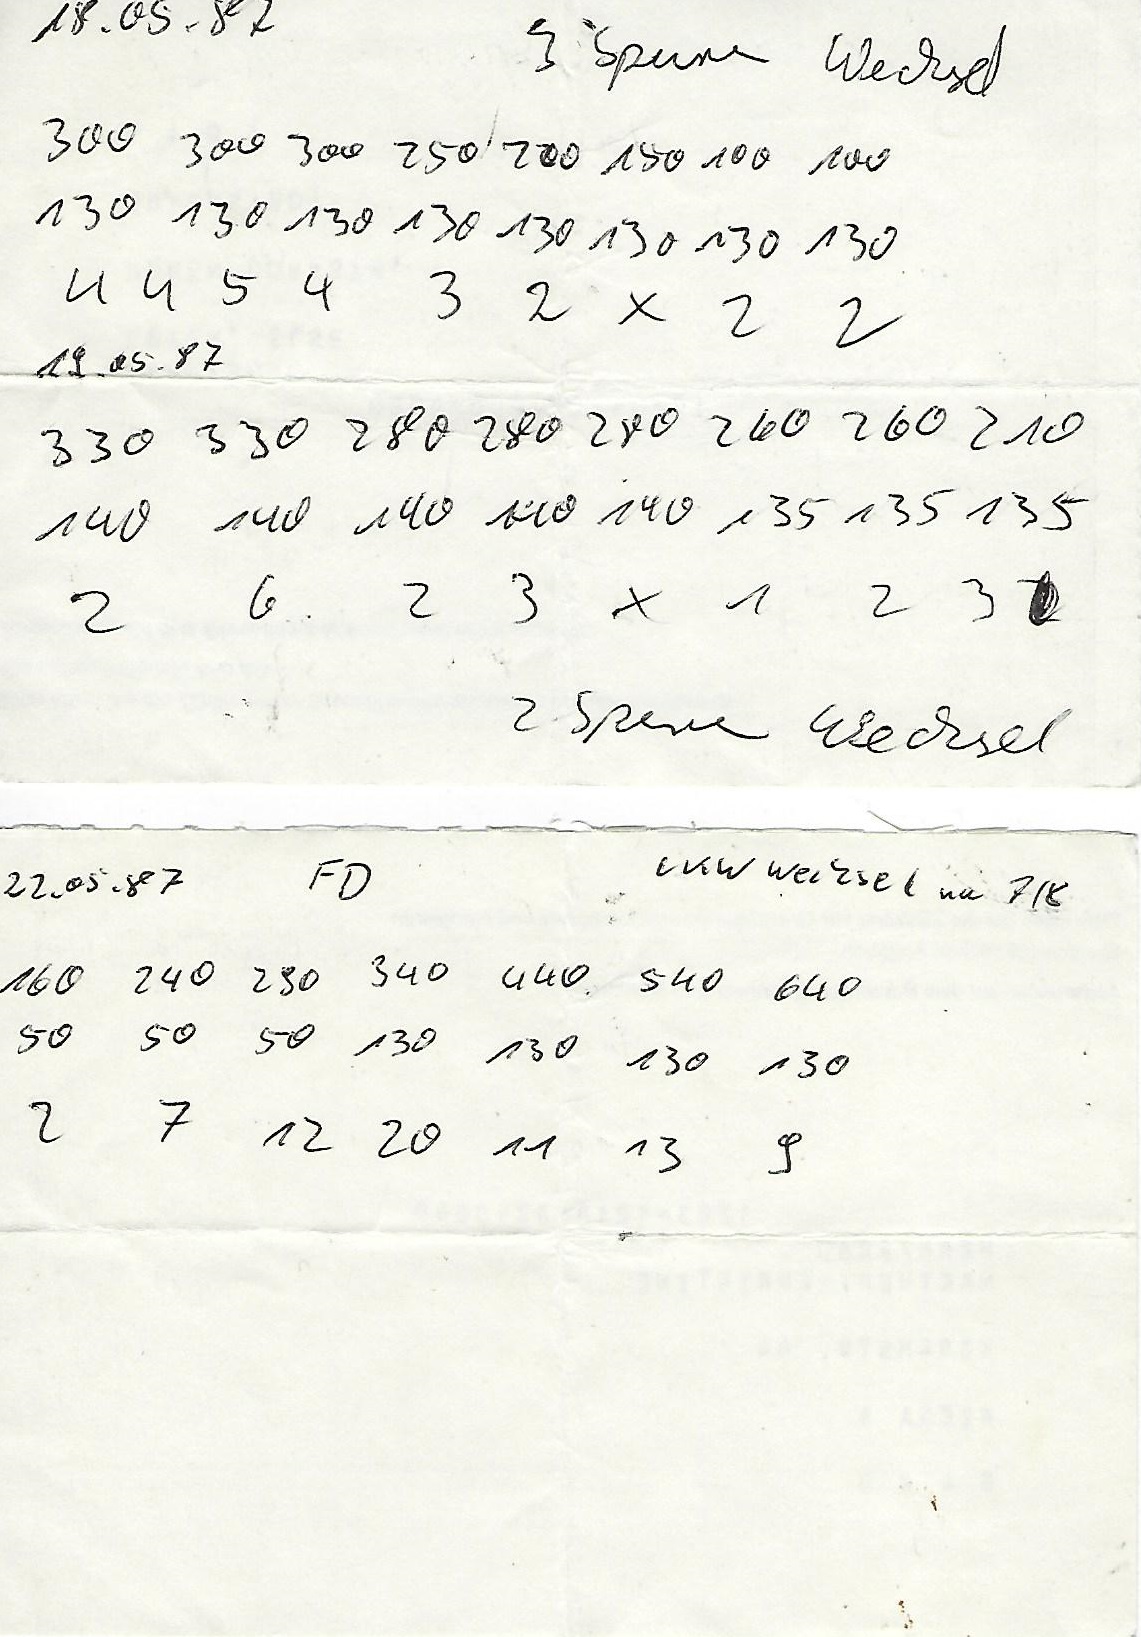 18.05.87
3 Spuren Wechsel
300 300 300 250 200 150 100 100
130 130 130 130 130 130 130 130
4 4 5 4 3 2 x 2 2
19.05.87
330 330 280 280 280 260 260 210
140 140 140 140 140 135 135 135
2 6 2 3 x 1 2 3
2 Spuren Wechsel
22.05.87 FD Wechsel 7/8
160 240 290 340 440 540 640
50 50 50 130 130 130 130
2 7 12 20 11 13 9